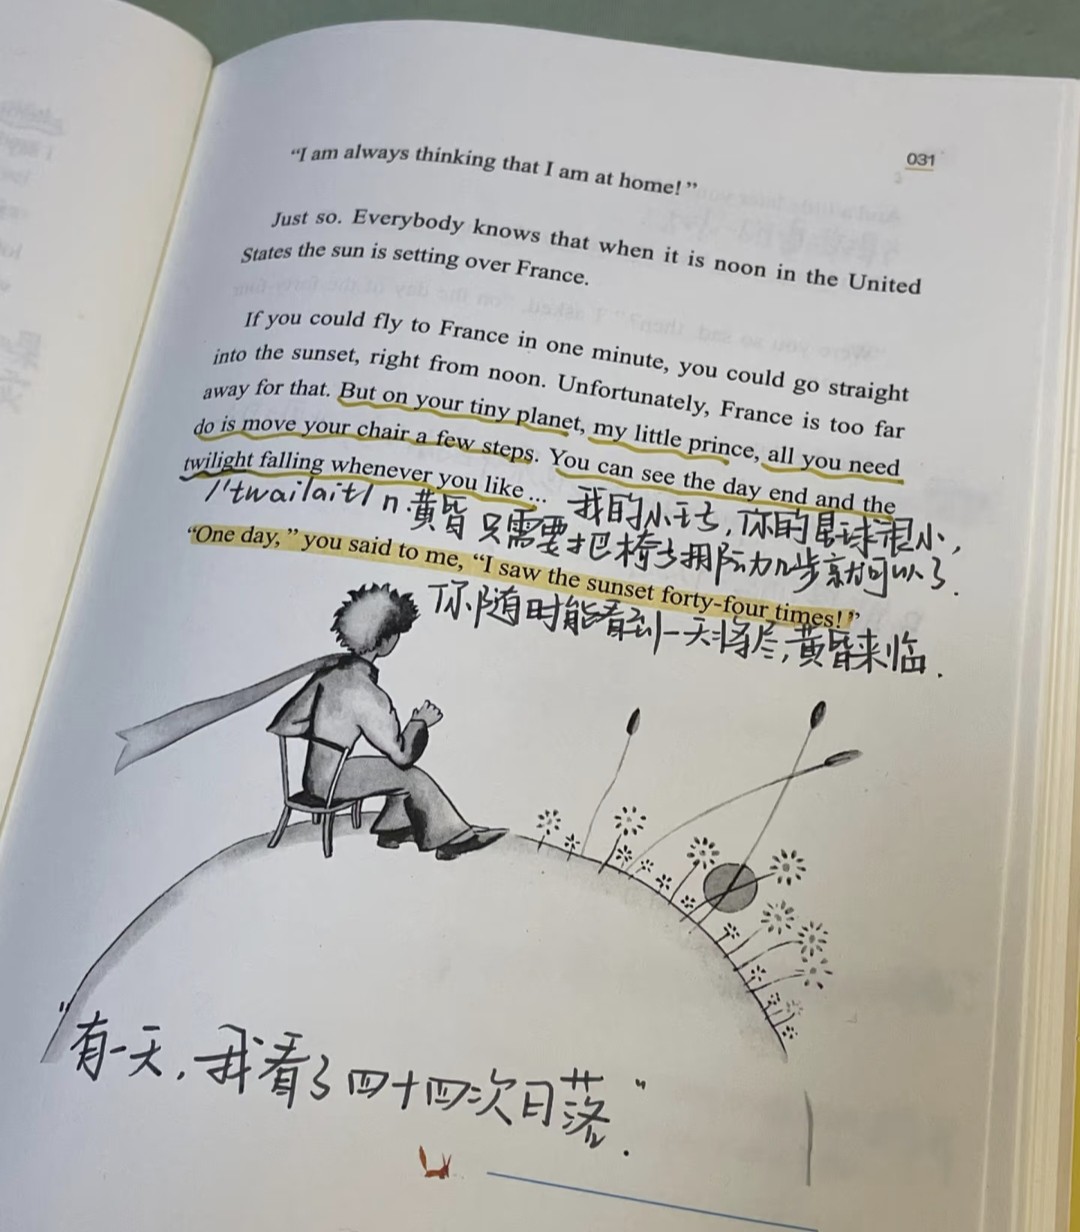 031
“I am always thinking that I am at home!”
Just so. Everybody knows that when it is noon in the United
States the sun is setting over France.
If you could fly to France in one minute, you could go straight
into the sunset, right from noon. Unfortunately, France is too far
away for that. But on your tiny planet, my little prince, all you need
do is move your chair a few steps. You can see the day end and the
twilight falling whenever you like ...
/'twailait/ n.黄昏
我的小王子,你的星球很小,
只需要把椅子挪动几步就可以了.
“One day,” you said to me, “I saw the sunset forty-four times!”
你随时能看到一天将尽,黄昏来临.
"有一天,我看了四十四次日落."